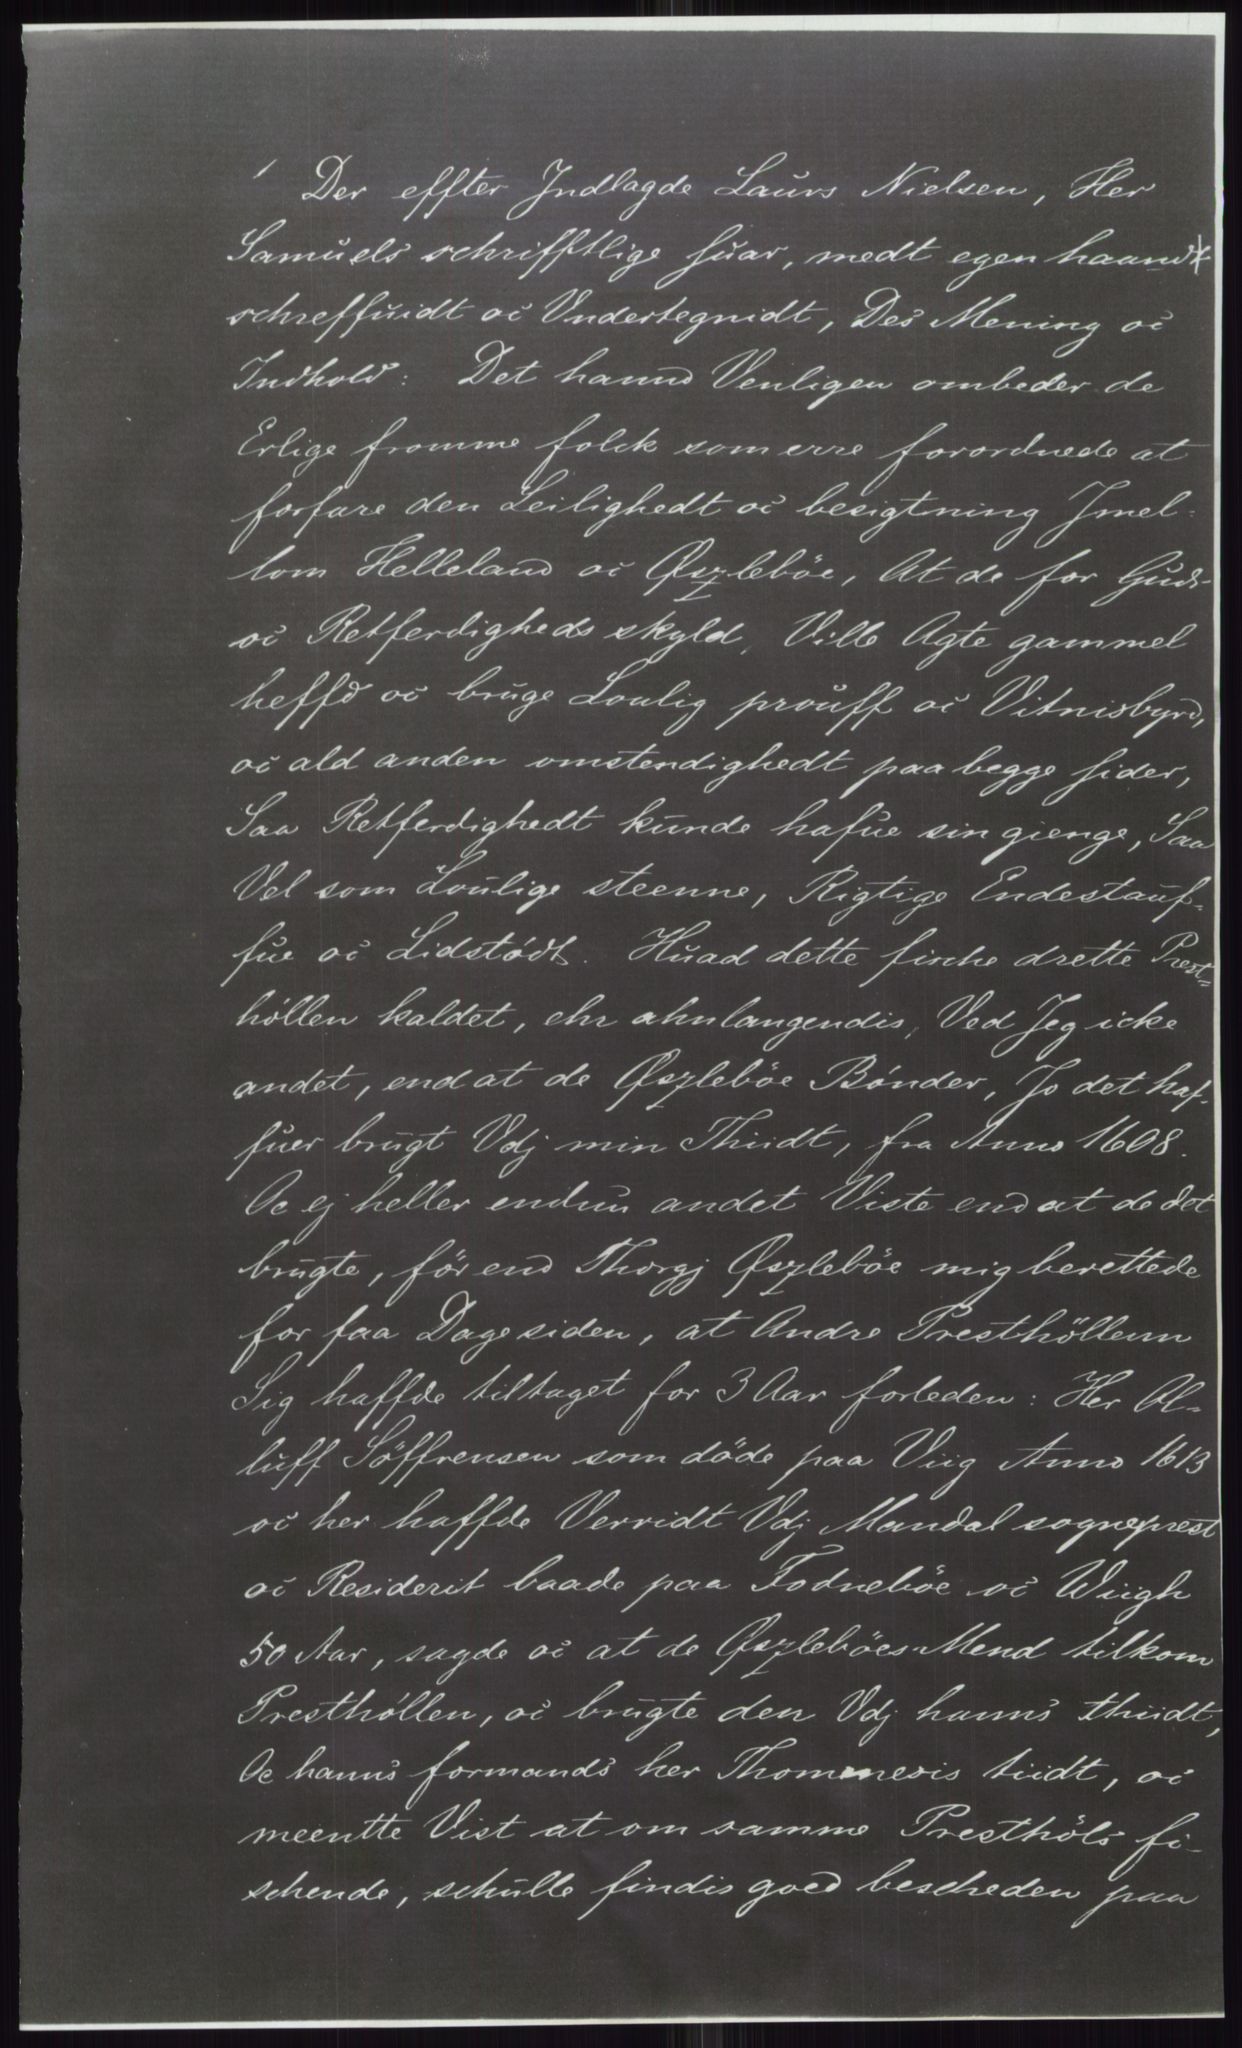 Der effter Indlagde Laurs Nielsen, Her
Samuels schrifftlige suar, medt egen haand
schreffuidt oc Undertegnidt, Des Mening oc
Indhold: Det hannd Venligen ombeder de
Erlige fromme folck som erre forordnede at
forfare den Leilighedt oc besigtning Imel-
lom Helleland oc Øszlebøe, At de for Guds
oc Retferdigheds skyld, Ville Agte gammel
heffd oc bruge Loulig prouff oc Vitnisbyrd,
oc ald anden omstendighedt paa begge sider,
Saa Retferdighedt kunde hafue sin gienge, Saa
Vel som Loulige steenne, Rigtige Endestauf-
fue oc Lidstødt. Huad dette fische drette Prest-
høllen kaldet, ehr ahnlangendis, Ved Jeg icke
andet, end at de Øszlebøe Bønder, Jo det haf-
fuer brugt Vdj min Thiidt, fra Anno 1608.
Oc ej heller endnu andet Viste end at de det
brugte, før end Thorgj Øszlebøe mig berettede
for faa Dage siden, at Andre Presthøllenn
Sig haffde tiltaget for 3 Aar forleden: Her Ol-
luff Søffrensen som døde paa Viig Anno 1613
oc her haffde Verridt Vdj Mandal sogneprest
oc Residerit baade paa Fodnebøe oc Wiigh
50 Aar, sagde oc at de Øszlebøes Mend tilkom
Presthøllen, oc brugte den Vdj hanns thiidt,
Oc hanns formands her Thommesis tiidt, oc
meentte Vist at om samme Presthøls fi-
schende, schulle findis goed bescheden paa